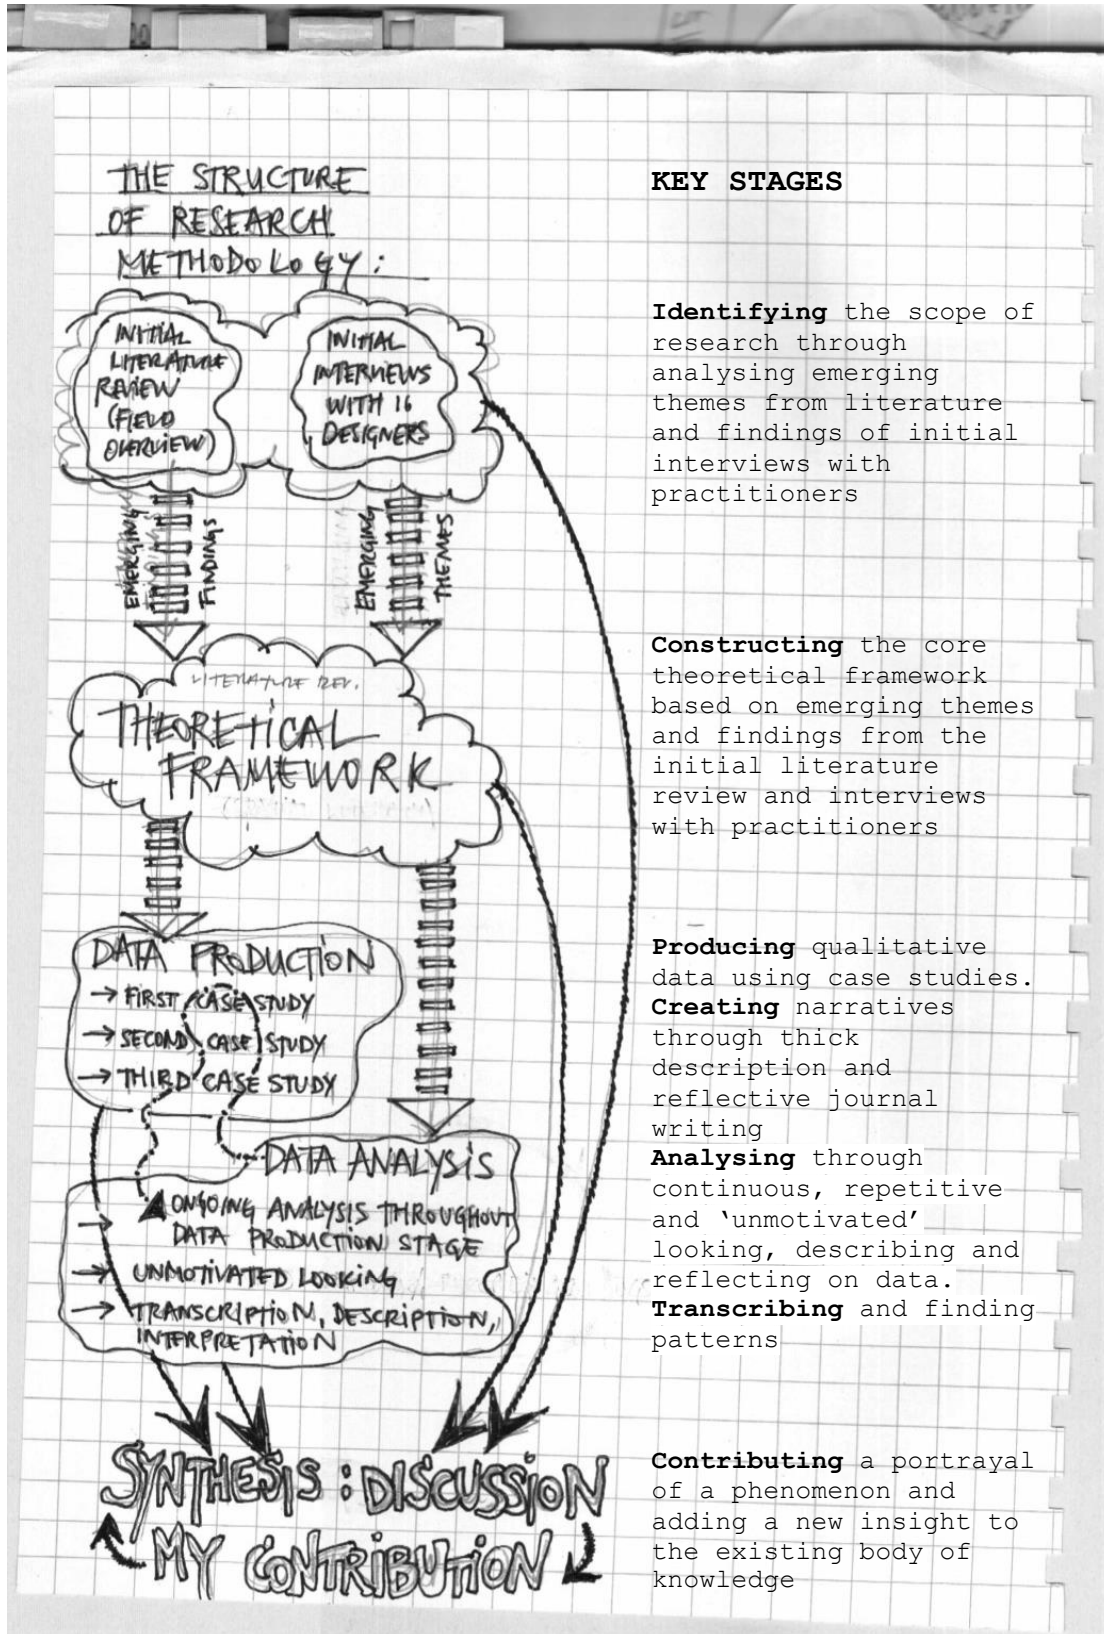 THE STRUCTURE
OF RESEARCH
METHODOLOGY:
INITIAL
LITERATURE
REVIEW
(FIELD
OVERVIEW)
INITIAL
INTERVIEWS
WITH 16
DESIGNERS
EMERGING
FINDINGS
EMERGING
THEMES
LITERATURE REV.
THEORETICAL
FRAMEWORK
DATA PRODUCTION
→ FIRST CASE STUDY
→ SECOND CASE STUDY
→ THIRD CASE STUDY
DATA ANALYSIS
→ ONGOING ANALYSIS THROUGHOUT
DATA PRODUCTION STAGE
→ UNMOTIVATED LOOKING
→ TRANSCRIPTION, DESCRIPTION,
INTERPRETATION
SYNTHESIS: DISCUSSION
MY CONTRIBUTION
KEY STAGES
Identifying the scope of
research through
analysing emerging
themes from literature
and findings of initial
interviews with
practitioners
Constructing the core
theoretical framework
based on emerging themes
and findings from the
initial literature
review and interviews
with practitioners
Producing qualitative
data using case studies.
Creating narratives
through thick
description and
reflective journal
writing
Analysing through
continuous, repetitive
and ‘unmotivated’
looking, describing and
reflecting on data.
Transcribing and finding
patterns
Contributing a portrayal
of a phenomenon and
adding a new insight to
the existing body of
knowledge